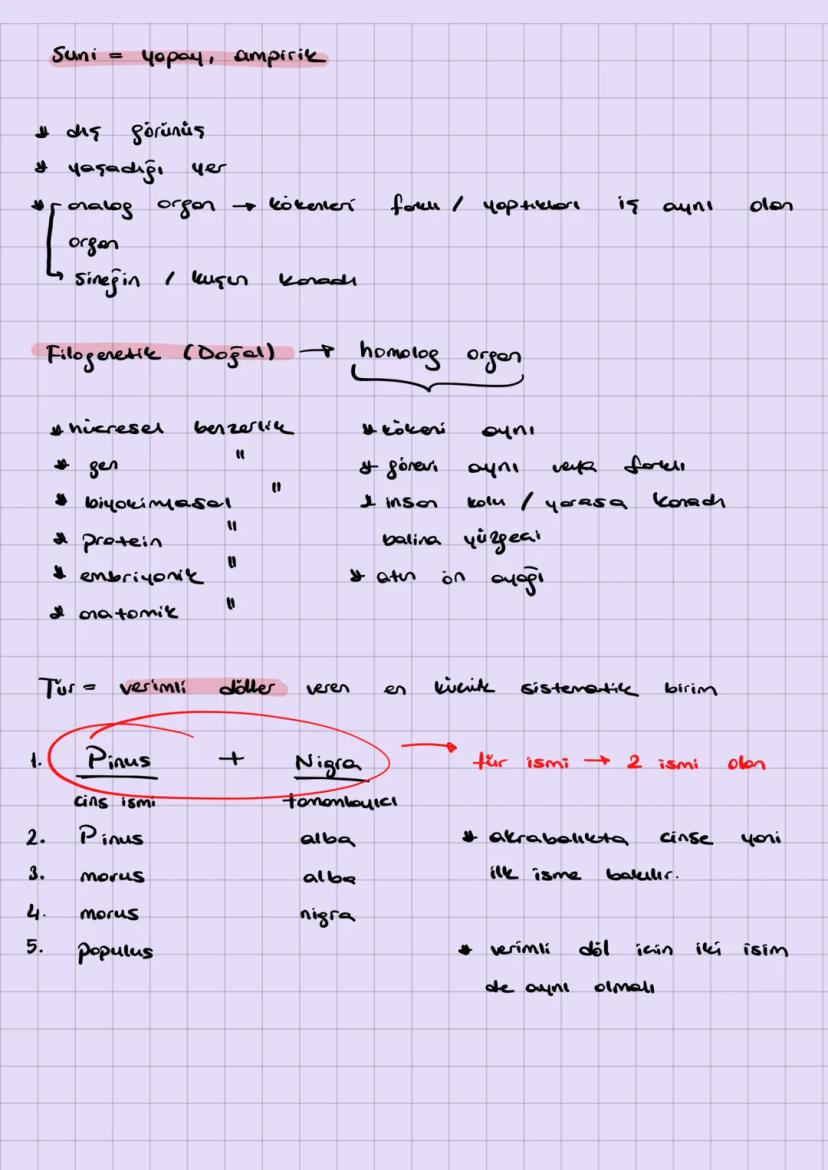 Suni = yapay, ampirik
* dış görünüş
* yaşadığı yer
* analog organ → kökenleri farklı / yaptıkları iş aynı olan
organ
↳ sineğin / kuşun kanadı
Filogenetik (Doğal) → homolog organ
* hücresel benzerlik
* gen "
* biyokimyasal "
* protein "
* embriyonik "
* anatomik "
* kökeni aynı
* görevi aynı veya farklı
* insan kolu / yarasa kanadı
balina yüzgeci
* atın ön ayağı
Tür = verimli döller veren en küçük sistematik birim
1. Pinus + Nigra → tür ismi → 2 ismi olan
cins ismi tanımlayıcı
2. Pinus alba
3. morus alba
4. morus nigra
5. populus
* akrabalıkta cinse yani
ilk isme bakılır.
* verimli döl için iki isim
de aynı olmalı